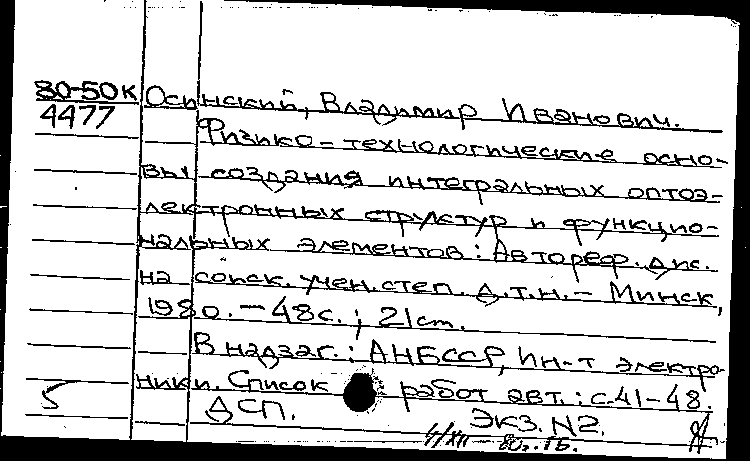 80-50к Осинский, Владимир Иванович.
4477 Физико-технологические осно-
вы создания интегральных оптоэ-
лектронных структур и функцио-
нальных элементов: Автореф. дис.
на соиск. учен. степ. д.т.н. - Минск,
1980. - 48с.; 21cm.
В надзаг.: АНБССР, Ин-т электро-
ники. Список работ авт.: с.41-48.
5 ДСП. Экз. N2.
4/XII-80г.